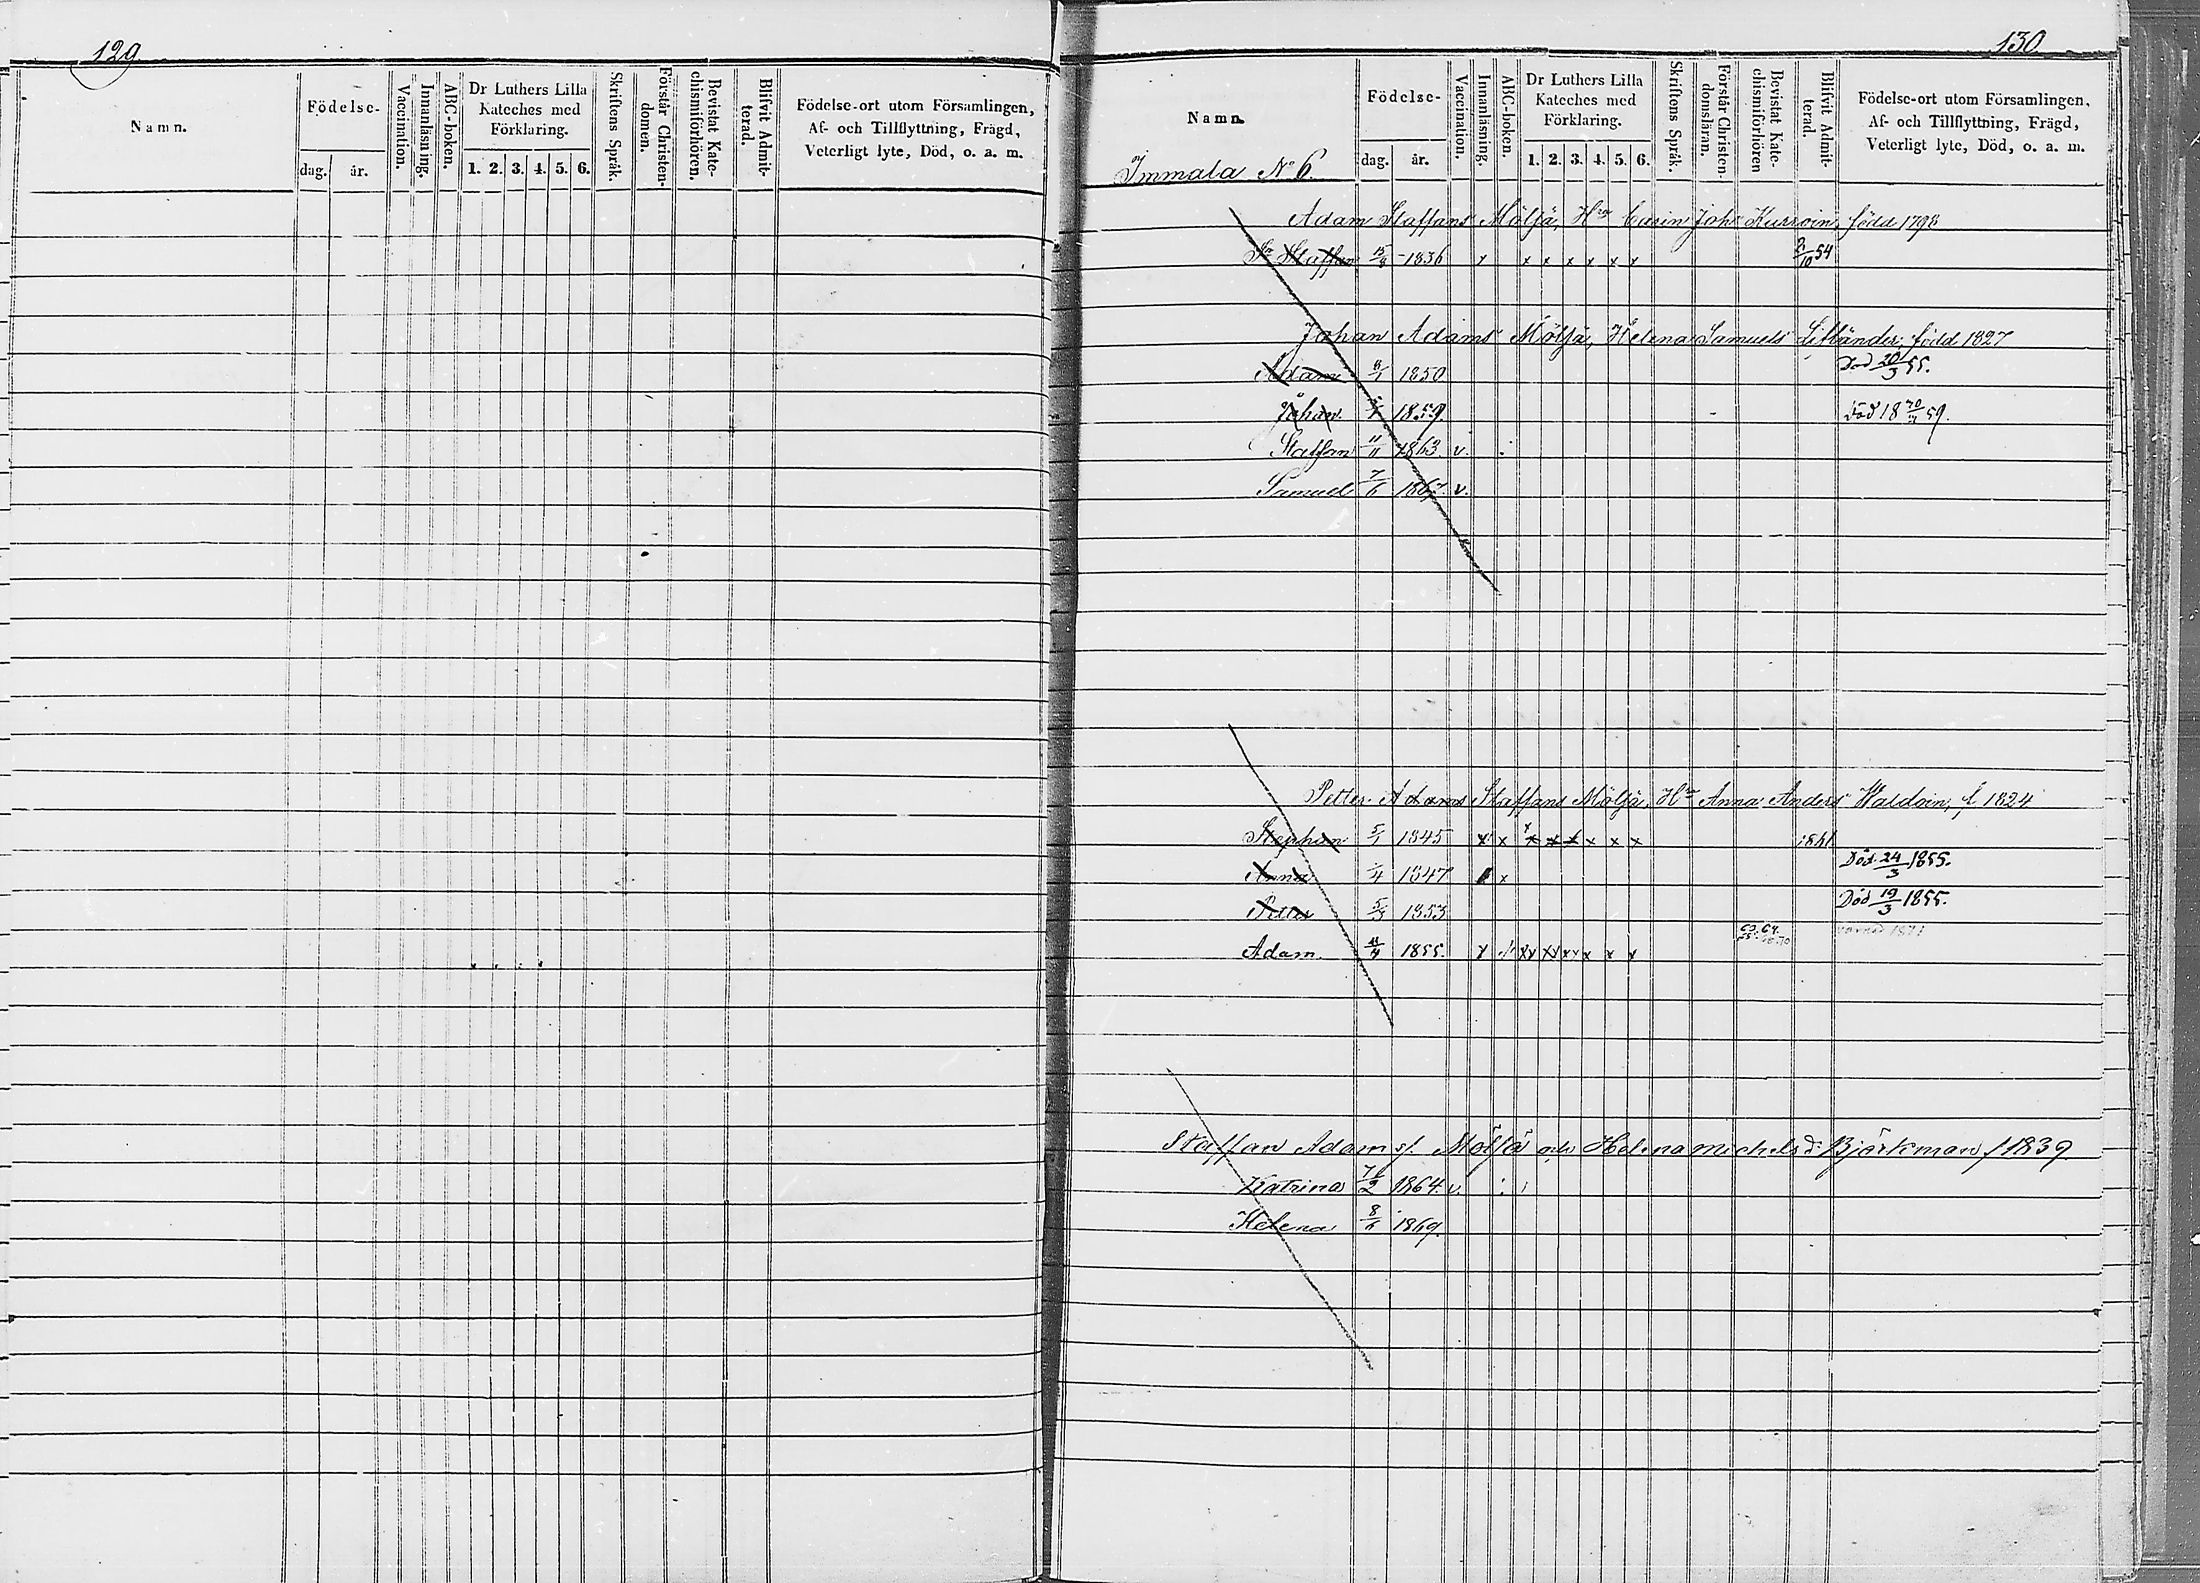 129
Namn.
Födelse-
dag. år.
Vaccination.
Innanläsning.
ABC-boken.
Dr Luthers Lilla
Kateches med
Förklaring.
1. 2. 3. 4. 5. 6.
Skriftens Språk.
Förstår Christen-
domen.
Bevistat Kate-
chismiförhören.
Blifvit Admit-
terad.
Födelse-ort utom Församlingen,
Af- och Tillflyttning, Frägd,
Veterligt lyte, Död, o. a. m.
130
Namn.
Immala No 6.
Födelse-
dag. år.
Vaccination.
Innanläsning.
ABC-boken.
Dr Luthers Lilla
Kateches med
Förklaring.
1. 2. 3. 4. 5. 6.
Skriftens Språk.
Förstår Christen-
domsläran.
Bevistat Kate-
chismiförhören
Blifvit Admit-
terad.
Födelse-ort utom Församlingen,
Af- och Tillflyttning, Frägd,
Veterligt lyte, Död, o. a. m.
Adam Staffans Mölsä, Hru Carin Johs Kurroin, född 1798
Sn Staffan 1836 x x x x x x x 2/10 54
Johan Adams Mölsä, Helena Samuels född 1827
Adam 1850 Död 20/3 55.
Johan 1859 Död 18 59.
Staffan 11/11 1863. v.
Samuel 7/6 1867. v.
Petter Adams Staffans Mölsä, Hru Anna Anders Waldoin, f 1824
Stephan 5/1 1845 x x x x x x x x 1861
Anna 1847 x Död 24/3 1855.
Petter 5/3 1853 Död 19/3 1855.
Adam 1855. x xx xx xx x x
Staffan Adamsf. Mölsä och Helena Michelsd. Björkman f 1839
Katrina 1864. v.
Helena 8/6 1869.